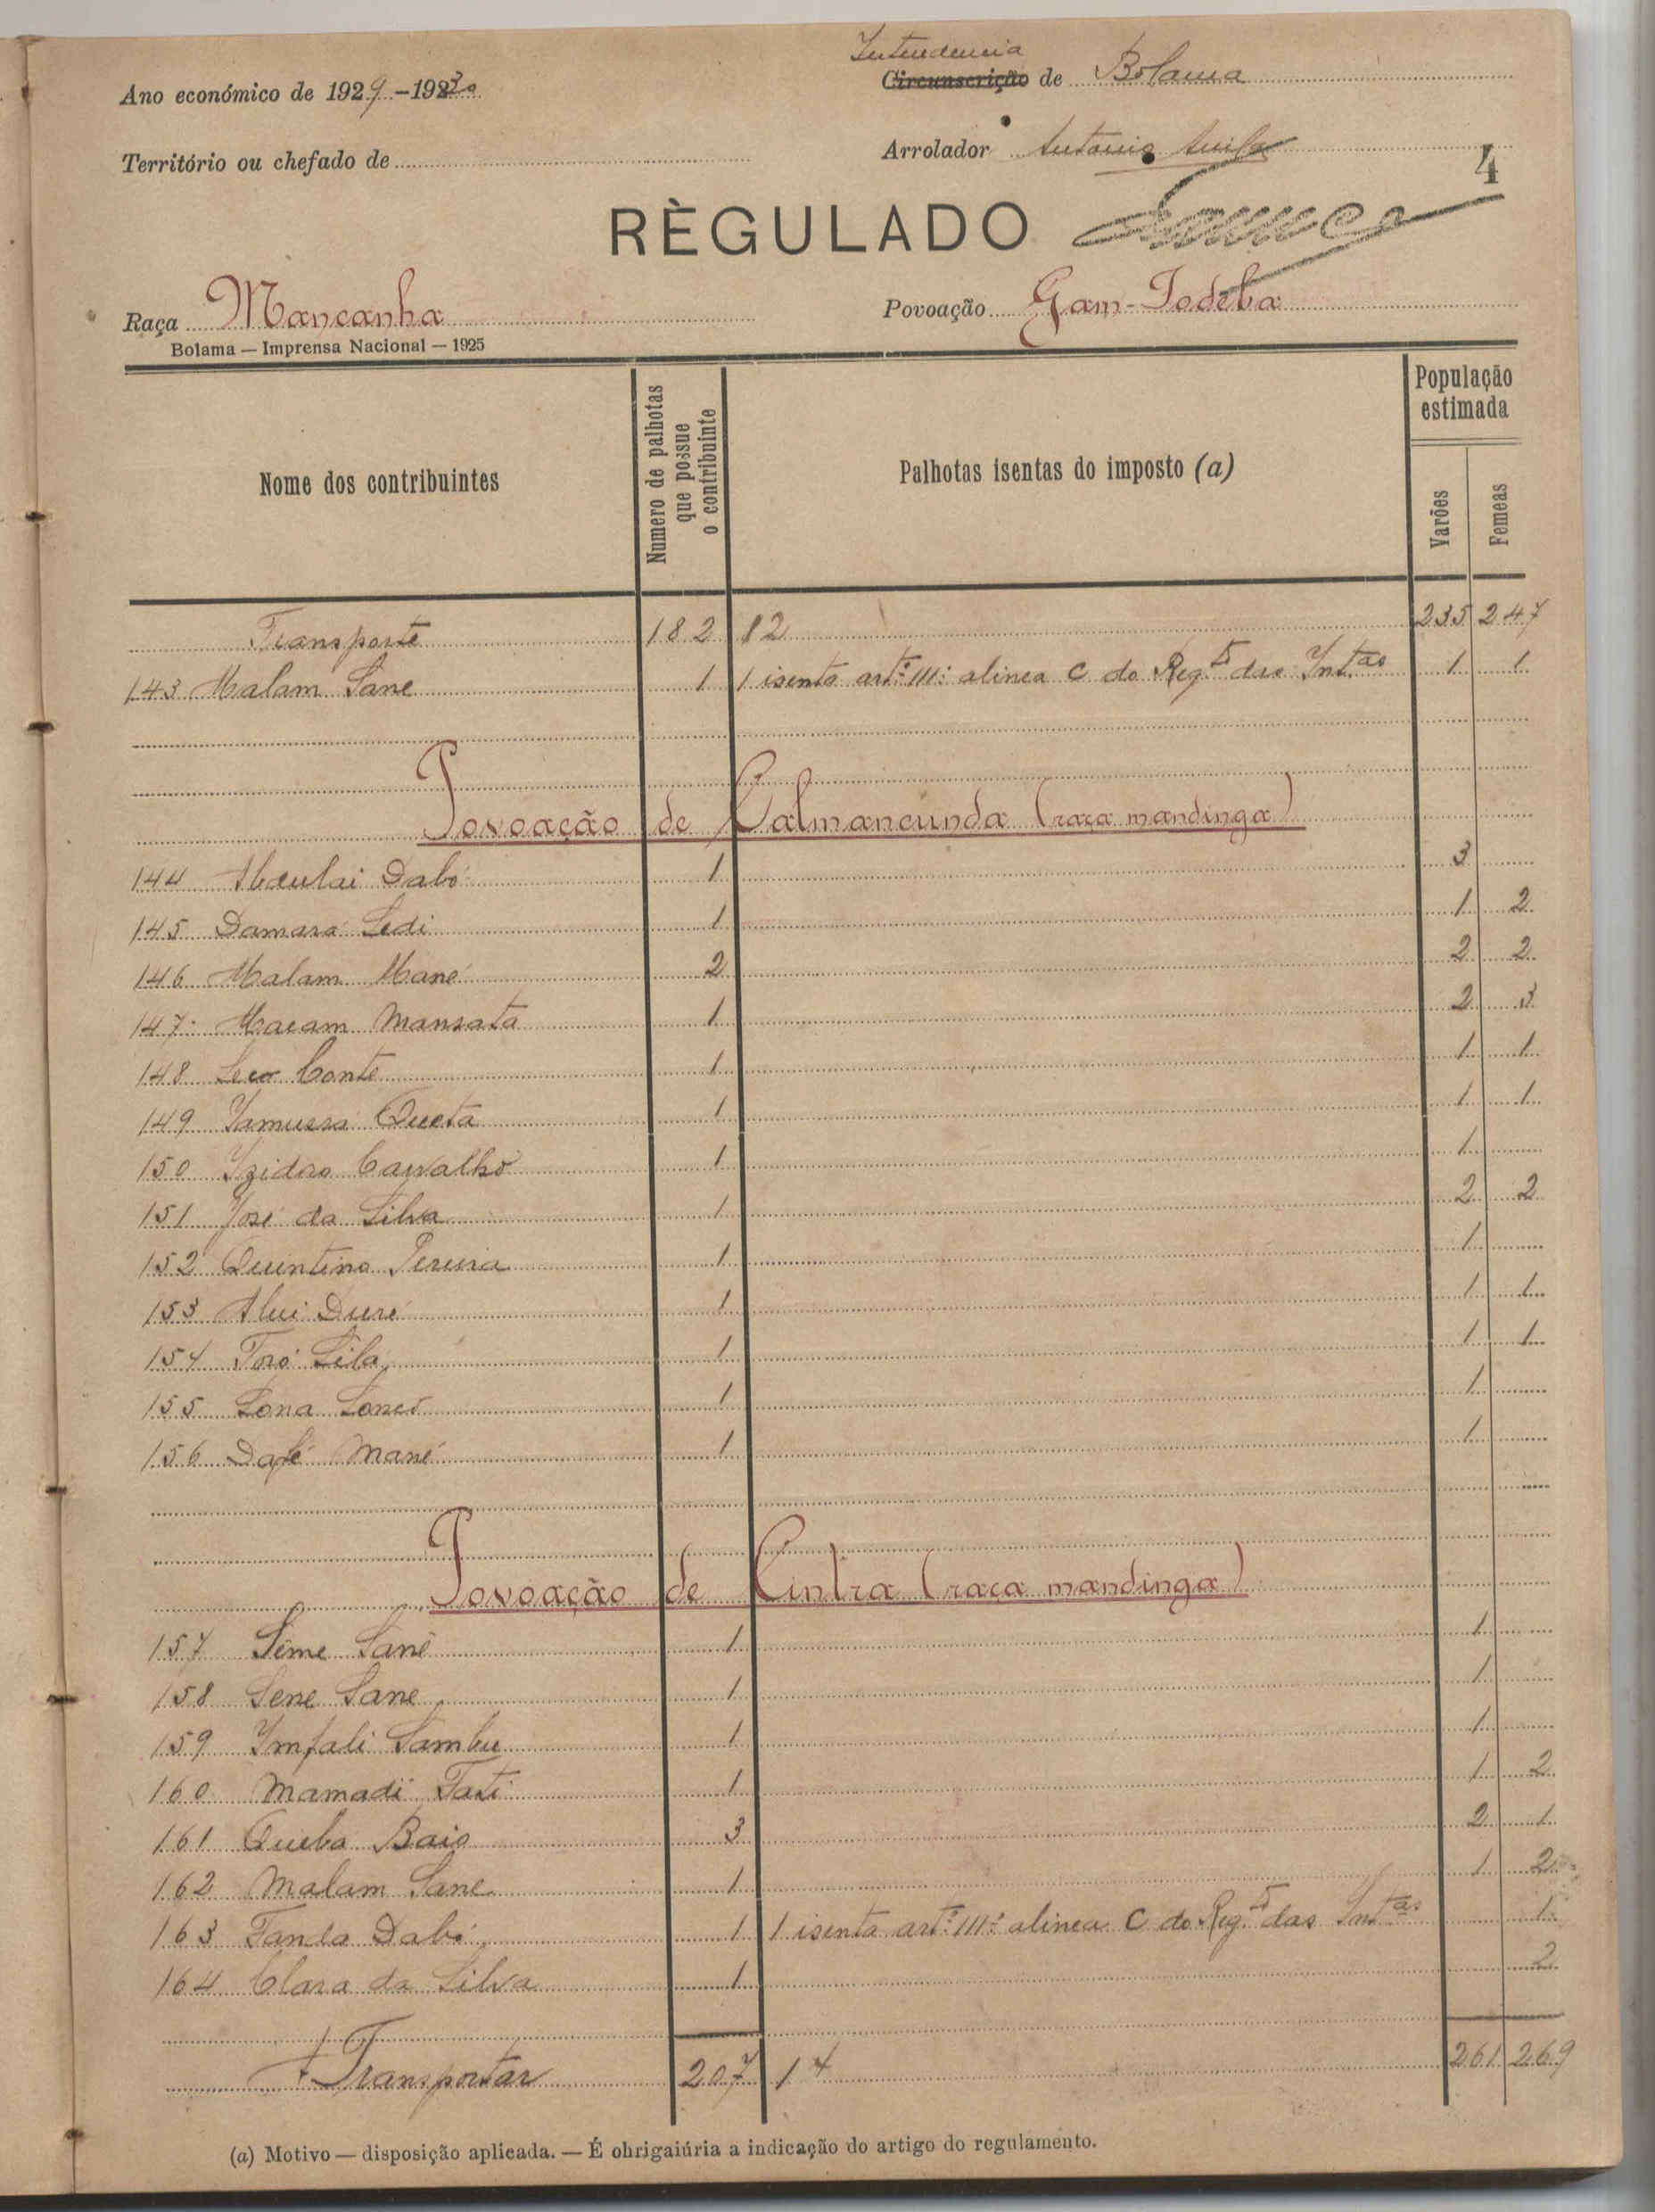 Intendencia
Ano económico de 1929-1930 Circunscrição de Bolama
Território ou chefado de Arrolador Antonio
4
RÈGULADO
Raça Mancanha Povoação Gam-Todeba
Bolama — Imprensa Nacional — 1925
Nome dos contribuintes Numero de palhotas que possue o contribuinte Palhotas isentas do imposto (a) População estimada Varões Femeas
Transporte 182 12 235 247
143 Malam Sane 1 1 isento artº 111º alinea C do Reg.to das Int.as 1 1
Povoação de Calmancunda (raça mandinga)
144 Abdulai Dabó 1 3
145 Damará Sedi 1 1 2
146 Malam Mané 2 2 2
147 Macam Mansata 1 2 3
148 Seco Conté 1 1 1
149 Iamussá Queta 1 1 1
150 Izidro Carvalho 1 1
151 José da Silva 1 2 2
152 Quintino Pereira 1 1
153 Alui Duré 1 1 1
154 Toró Sila 1 1 1
155 Sona Soncó 1 1
156 Dafé Mané 1 1
Povoação de Cintra (raça mandinga)
157 Séme Sané 1 1
158 Sene Sane 1 1
159 Imfali Sambu 1 1
160 Mamadi Fati 1 1 2
161 Queba Baio 3 2 1
162 Malam Sane 1 1 2
163 Fanta Dabó 1 1 isenta artº 111º alinea C do Reg.to das Int.as 1
164 Clara da Silva 1 2
A Transportar 207 14 261 269
(a) Motivo — disposição aplicada. — É obrigaiúria a indicação do artigo do regulamento.